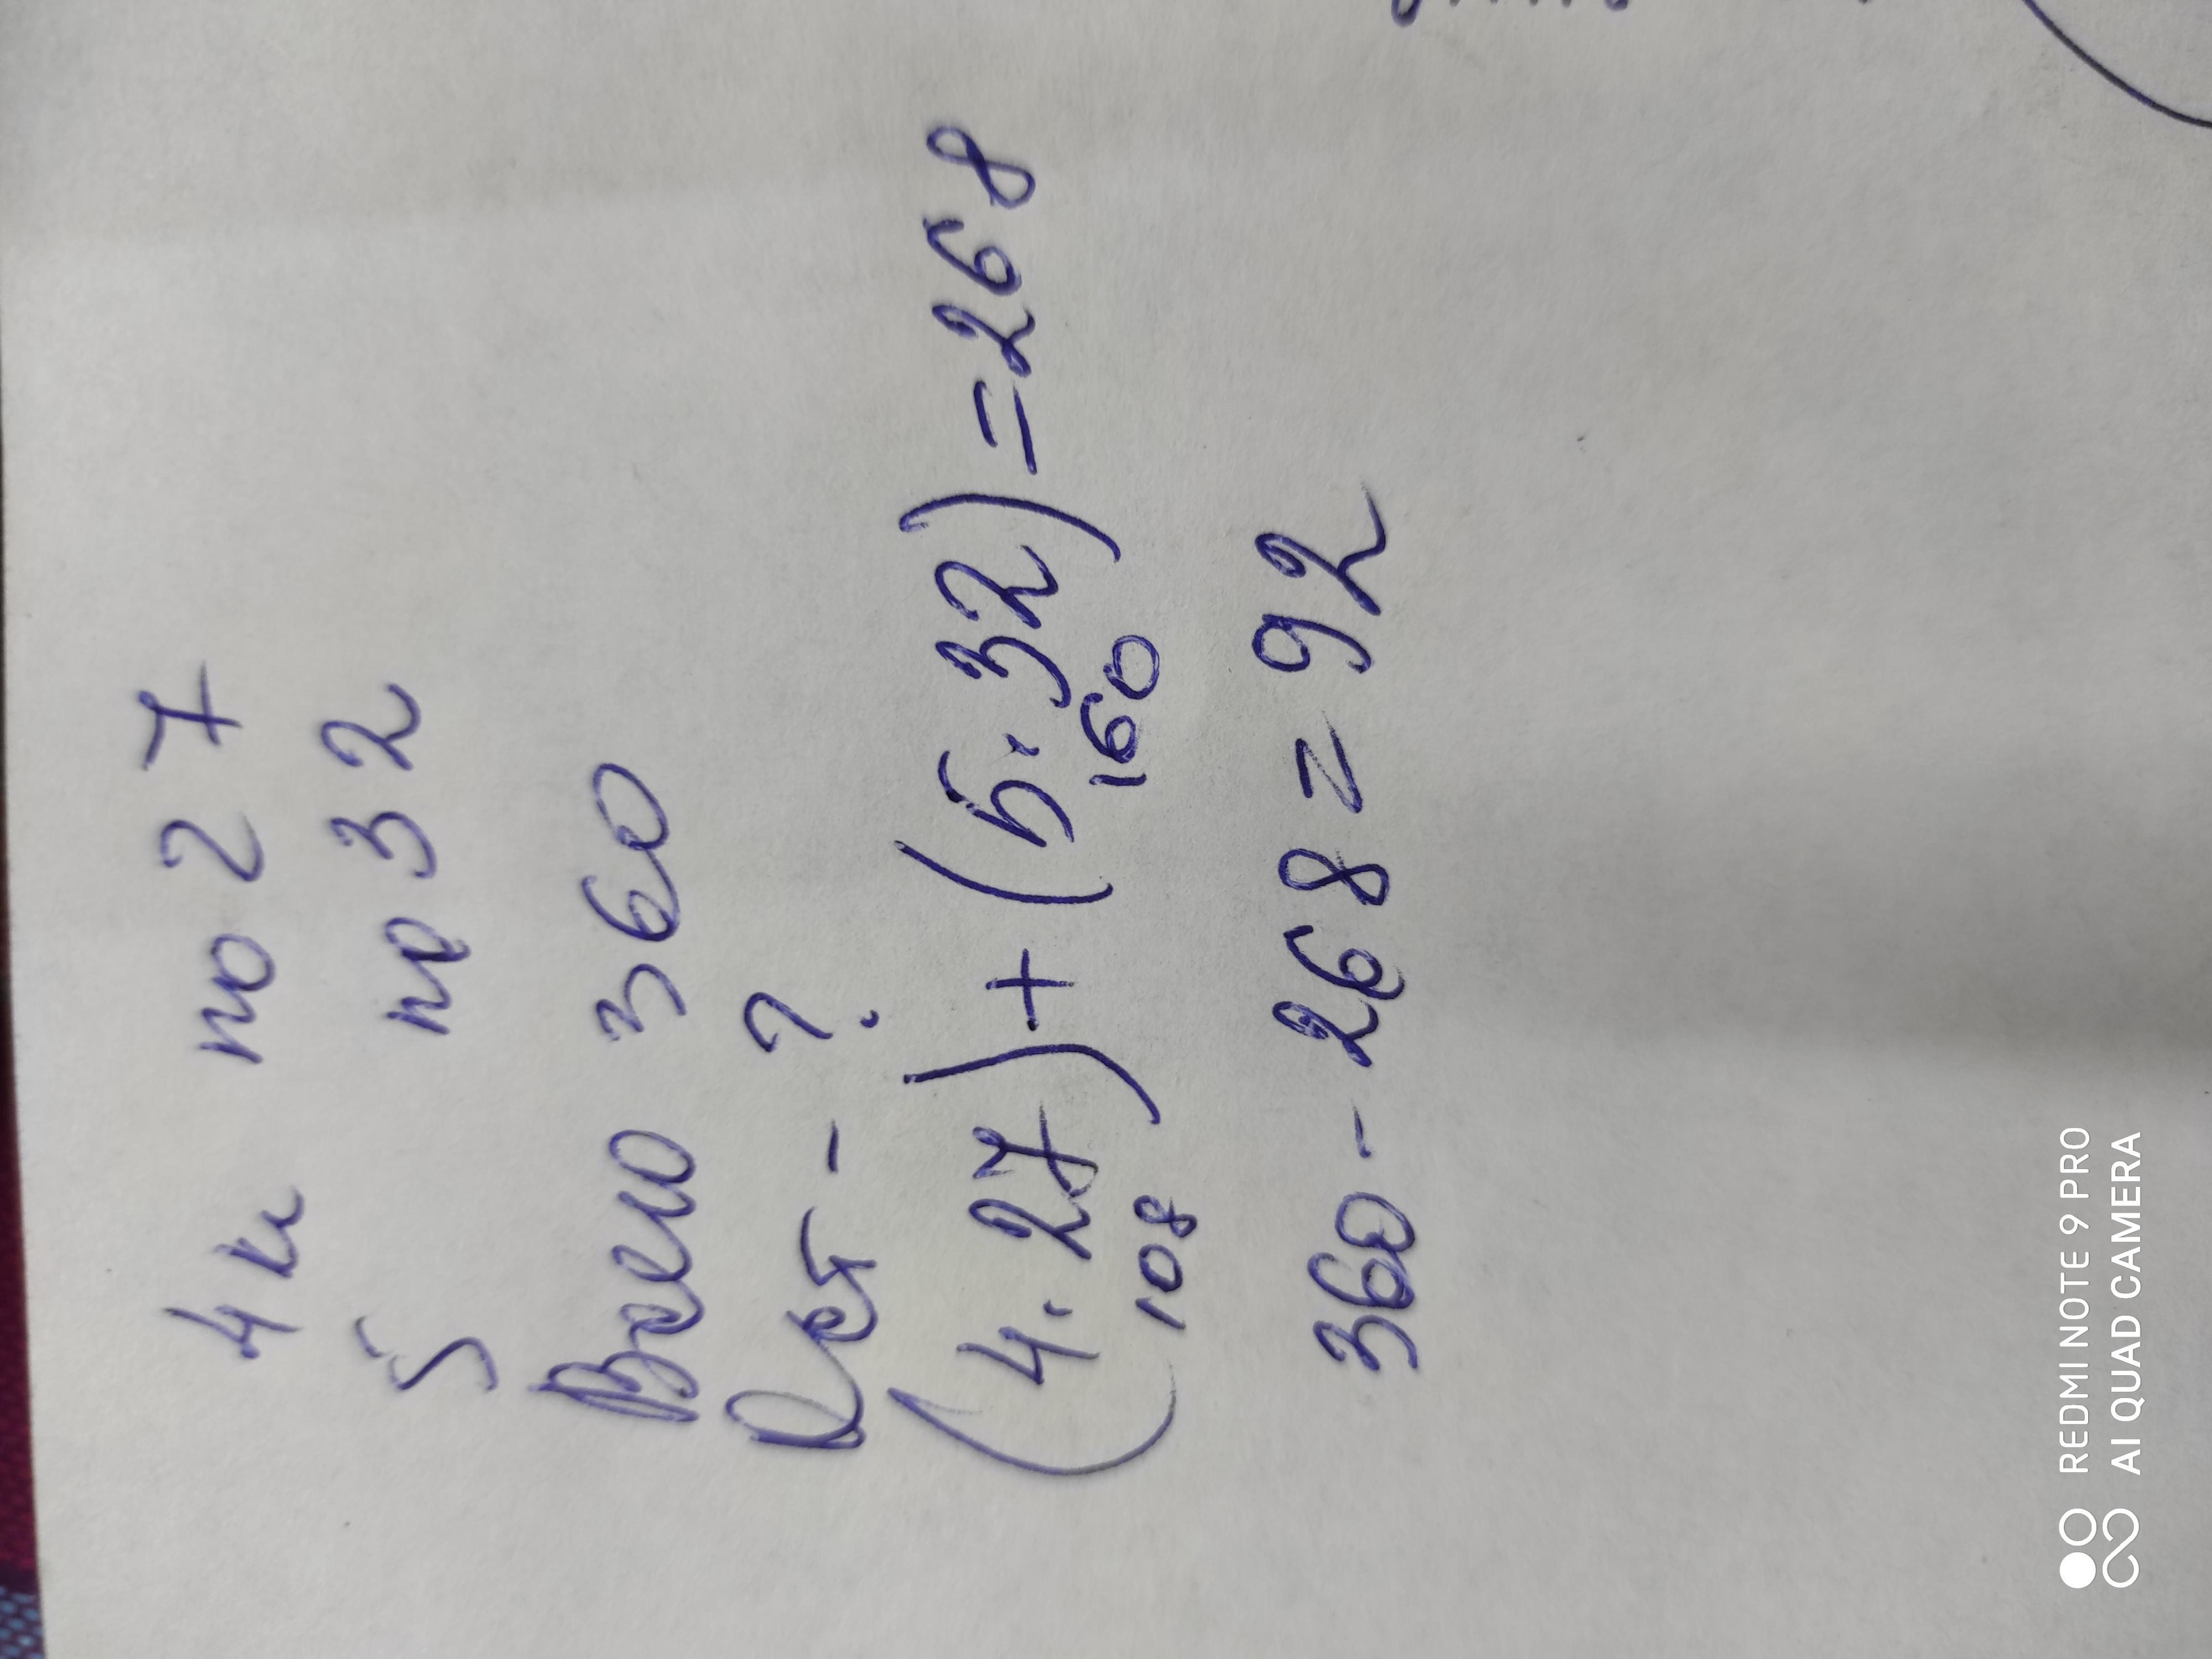 4 к по 27
5 по 32
Всего 360
Ост - ?
(4 · 27) + (5 · 32) = 268
108 160
360 - 268 = 92
REDMI NOTE 9 PRO
AI QUAD CAMERA